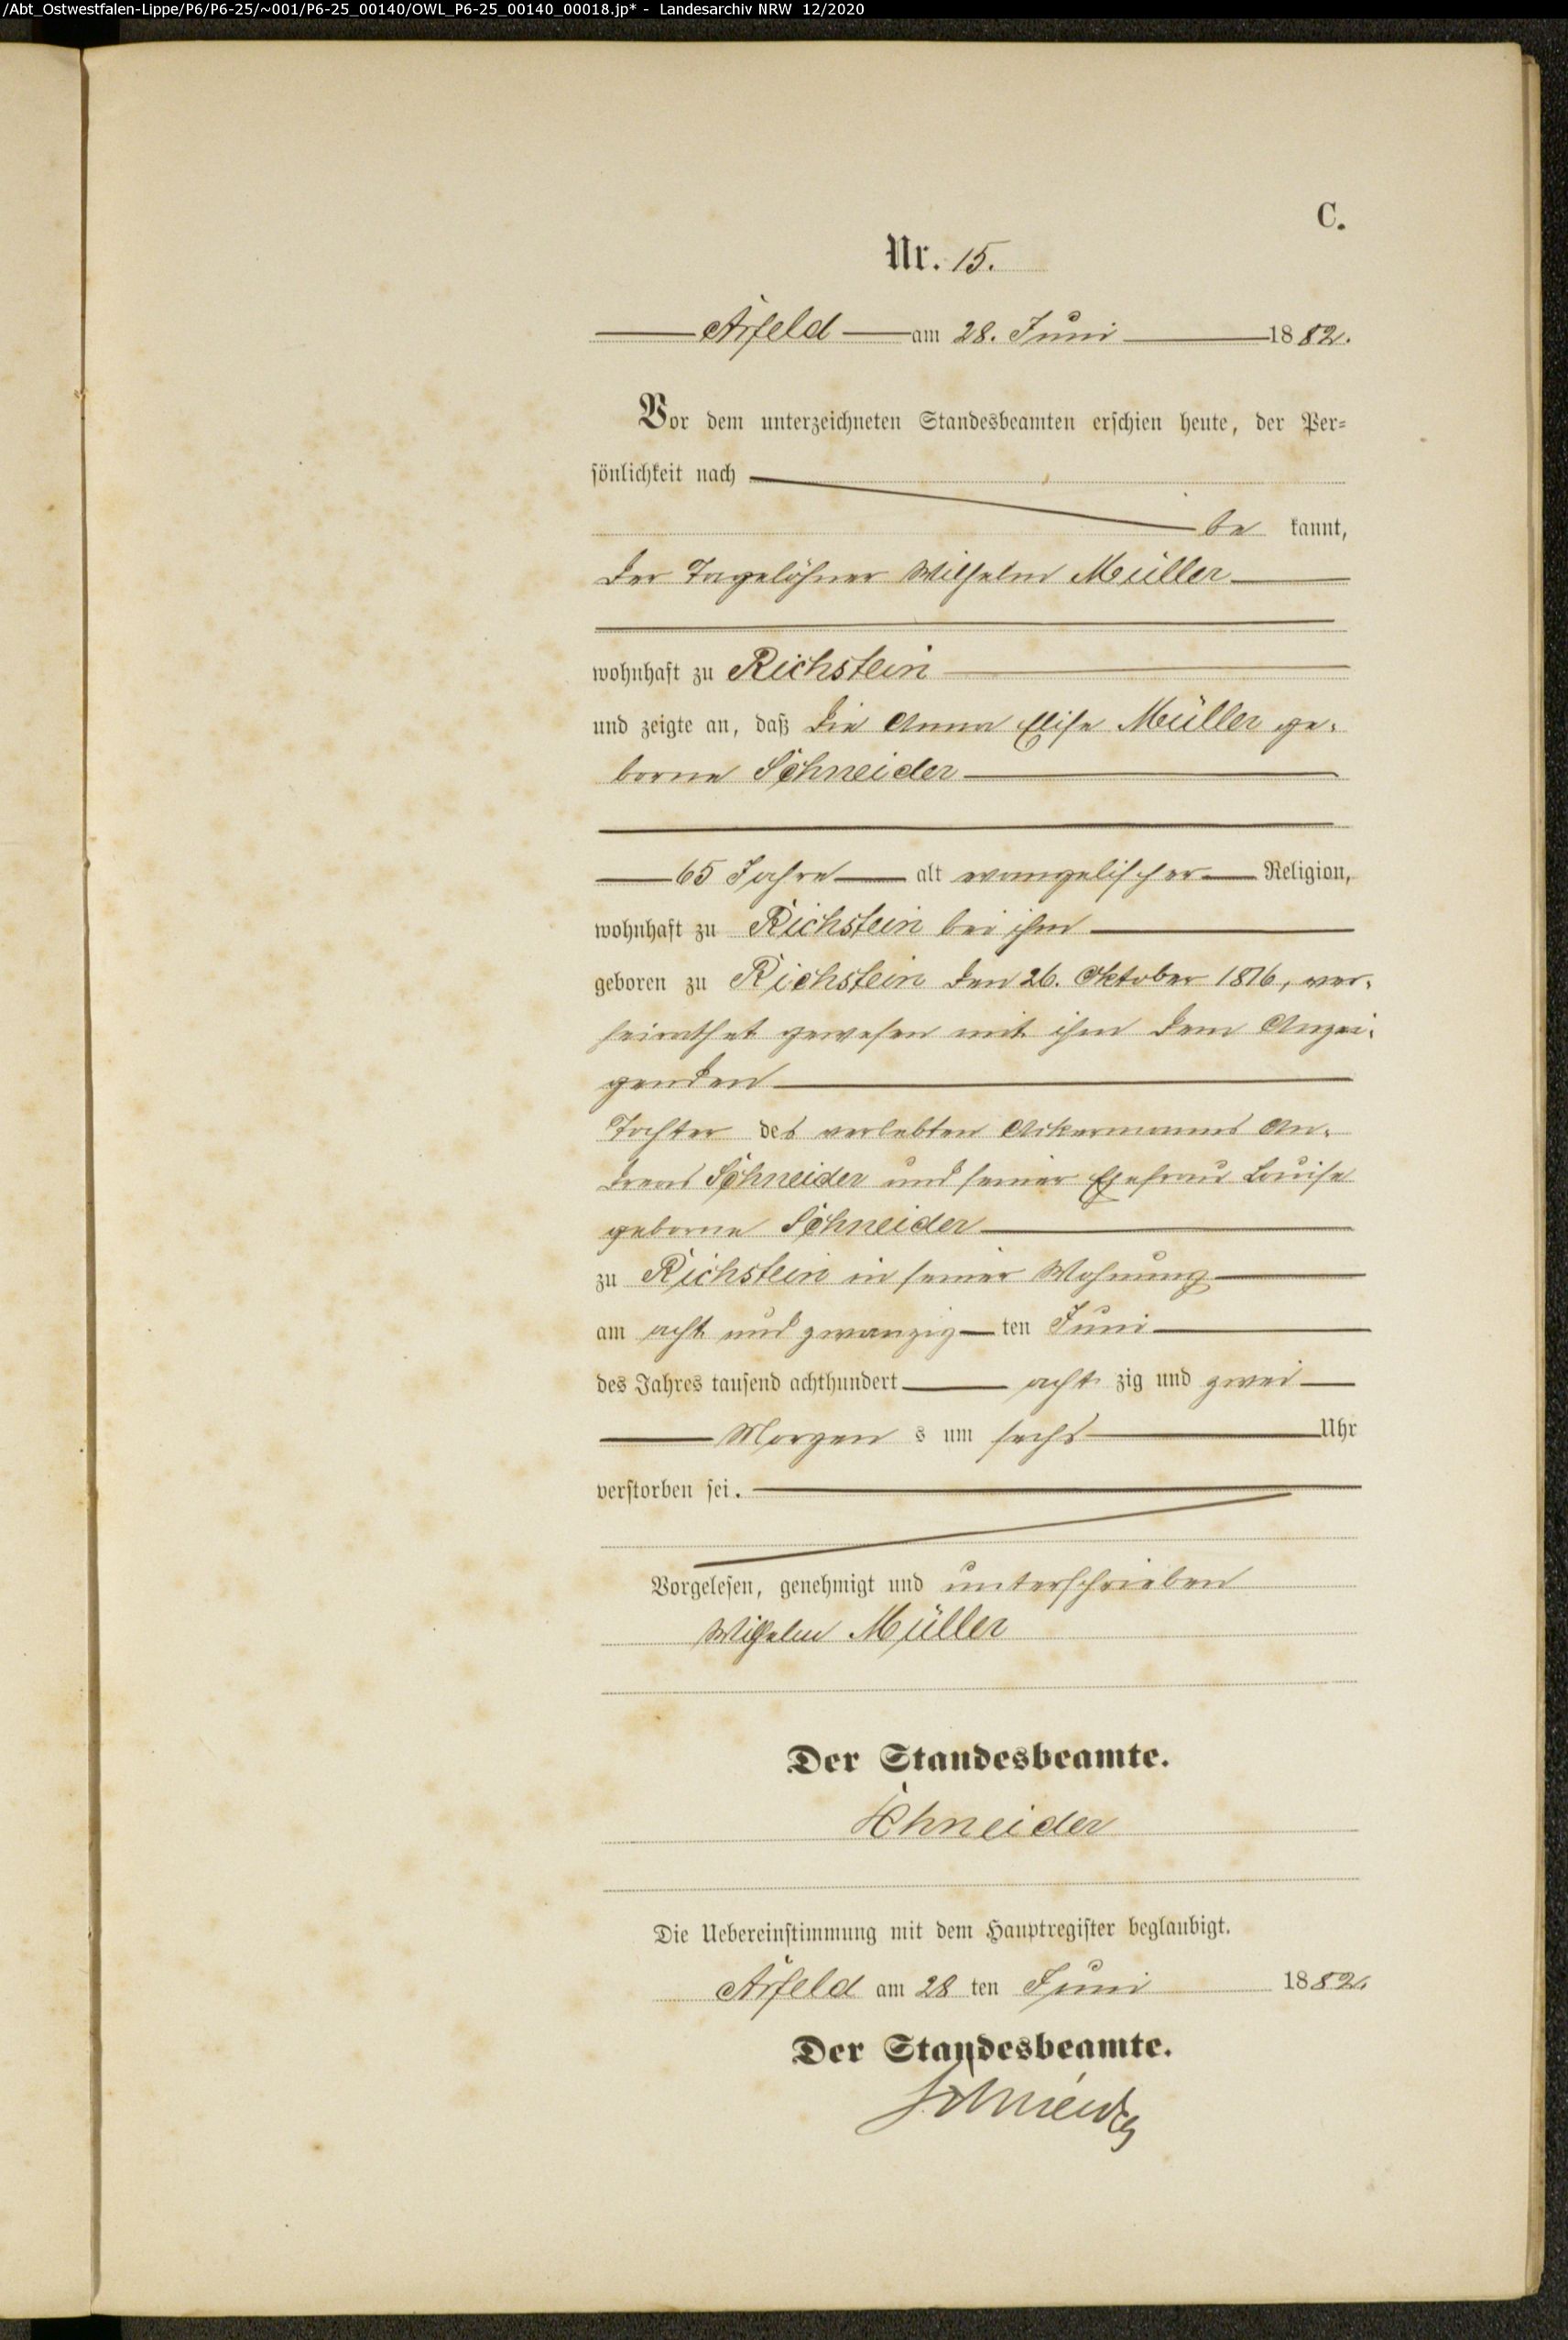 /Abt_Ostwestfalen-Lippe/P6/P6-25/~001/P6-25_00140/OWL_P6-25_00140_00018.jp* - Landesarchiv NRW 12/2020
C.
Nr. 15.
Arfeld am 28. Juni 1882.
Vor dem unterzeichneten Standesbeamten erschien heute, der Per-
sönlichkeit nach
be kannt,
der Tagelöhner Wilhelm Müller
wohnhaft zu Richstein
und zeigte an, daß die Anna Elise Müller ge-
borne Schneider
65 Jahre alt evangelischer Religion,
wohnhaft zu Richstein bei ihm
geboren zu Richstein den 26. Oktober 1816, ver-
heirathet gewesen mit ihm dem Anzei-
genden
Tochter des verlebten Ackermanns An-
dreas Schneider und seiner Ehefrau Louise
geborne Schneider
zu Richstein in seiner Wohnung
am acht und zwanzig ten Juni
des Jahres tausend achthundert acht zig und zwei
Morgen s um sechs Uhr
verstorben sei.
Vorgelesen, genehmigt und unterschrieben
Wilhelm Müller
Der Standesbeamte.
Schneider
Die Uebereinstimmung mit dem Hauptregister beglaubigt.
Arfeld am 28 ten Juni 1882.
Der Standesbeamte.
Schneider